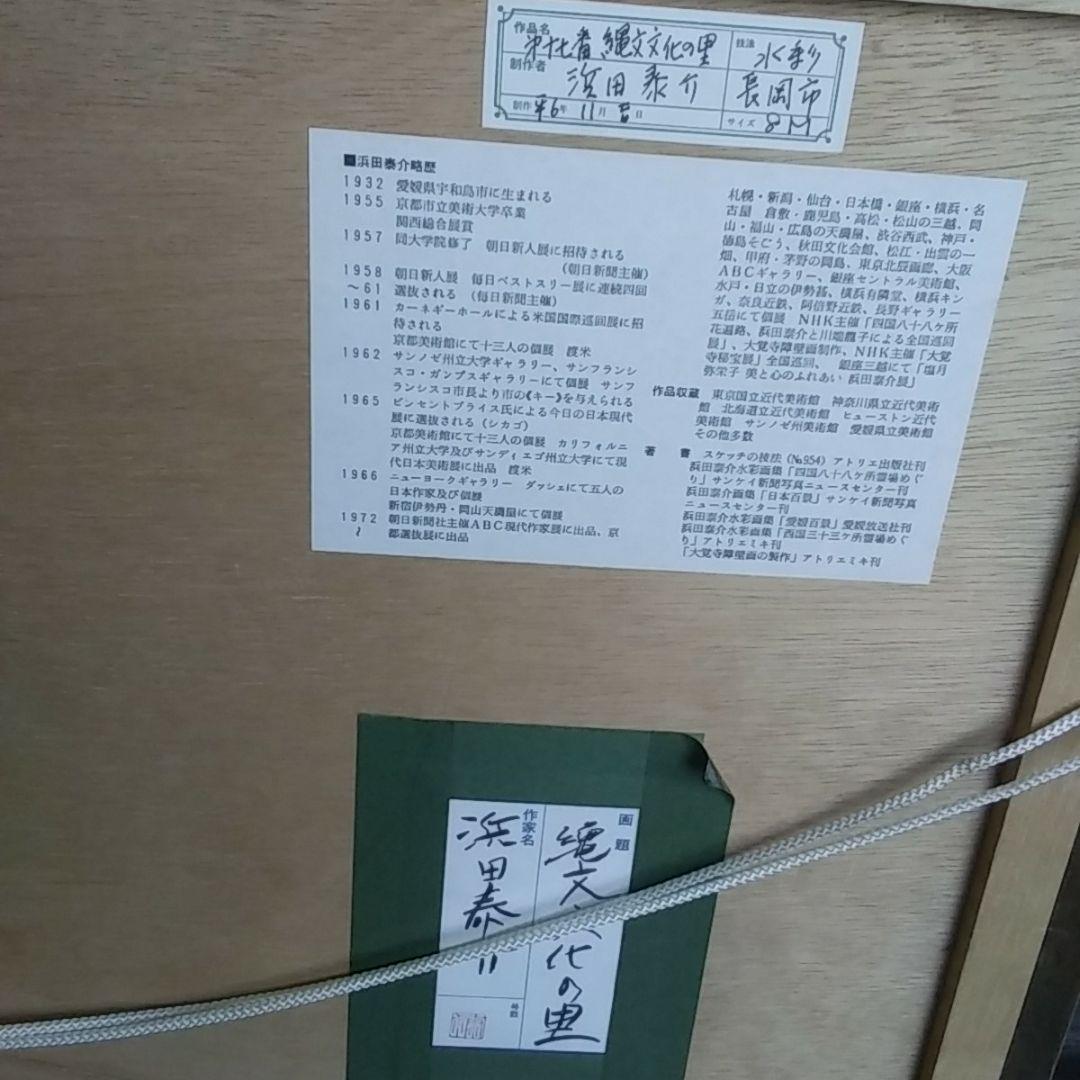 作品名 縄文文化の里
技法 水彩
制作者 浜田泰介
長岡市
制作 平6年 11月 日
サイズ 8M
■浜田泰介略歴
1932 愛媛県宇和島市に生まれる
1955 京都市立美術大学卒業
関西総合展賞
1957 同大学院修了 朝日新人展に招待される
(朝日新聞主催)
1958 朝日新人展 毎日ベストスリー展に連続四回
～61 選抜される (毎日新聞主催)
1961 カーネギーホールによる米国国際巡回展に招
待される
京都美術館にて十三人の個展 渡米
1962 サンノゼ州立大学ギャラリー、サンフランシ
スコ・ガンプスギャラリーにて個展 サンフ
ランシスコ市長より市の《キー》を与えられる
1965 ビンセントプライス氏による今日の日本現代
展に選抜される (シカゴ)
京都美術館にて十三人の個展 カリフォルニ
ア州立大学及びサンディエゴ州立大学にて現
代日本美術展に出品 渡米
1966 ニューヨークギャラリー ダッシェにて五人の
日本作家及び個展
新宿伊勢丹・岡山天満屋にて個展
1972 朝日新聞社主催ABC現代作家展に出品、京
～ 都選抜展に出品
札幌・新潟・仙台・日本橋・銀座・横浜・名
古屋 倉敷・鹿児島・高松・松山の三越、岡
山・福山・広島の天満屋、渋谷西武、神戸・
徳島そごう、秋田文化会館、松江・出雲の一
畑、甲府・茅野の岡島、東京北辰画廊、大阪
ABCギャラリー、銀座セントラル美術館、
水戸・日立の伊勢甚、横浜有隣堂、横浜キン
ガ、奈良近鉄、阿倍野近鉄、長野ギャラリー
五岳にて個展 NHK主催「四国八十八ケ所
花遍路、浜田泰介と川端龍子による全国巡回
展」、大覚寺障壁画制作、NHK主催「大覚
寺秘宝展」全国巡回、 銀座三越にて「塩月
弥栄子 美と心のふれあい 浜田泰介展」
作品収蔵 東京国立近代美術館 神奈川県立近代美術
館 北海道立近代美術館 ヒューストン近代
美術館 サンノゼ州美術館 愛媛県立美術館
その他多数
著 書 スケッチの技法 (№954) アトリエ出版社刊
浜田泰介水彩画集「四国八十八ケ所霊場めぐ
り」サンケイ新聞写真ニュースセンター刊
浜田泰介画集「日本百景」サンケイ新聞写真
ニュースセンター刊
浜田泰介水彩画集「愛媛百景」愛媛放送社刊
浜田泰介水彩画集「西国三十三ケ所霊場めぐ
り」アトリエミキ刊
「大覚寺障壁画の製作」アトリエミキ刊
画題
縄文文化の里
作家名
浜田泰介
号数